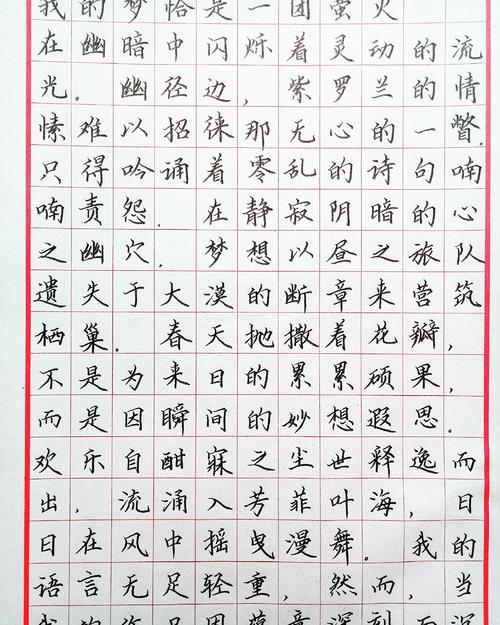 我的梦恰是一团萤火
在幽暗中闪烁着灵动的流
光。幽径边,紫罗兰的情
愫难以招徕那无心的一瞥.
只得吟诵着零乱的诗句喃
喃责怨.在静寂阴暗的心
之幽穴.梦想以昼之旅队
遗失于大漠的断章来营筑
栖巢。春天抛撒着花瓣,
不是为来日的累累硕果,
而是因瞬间的妙想遐思。
欢乐自酣寐之尘世释逸而
出,流涌入芳菲叶海,日
日在风中摇曳漫舞。我的
语言无足轻重,然而,当